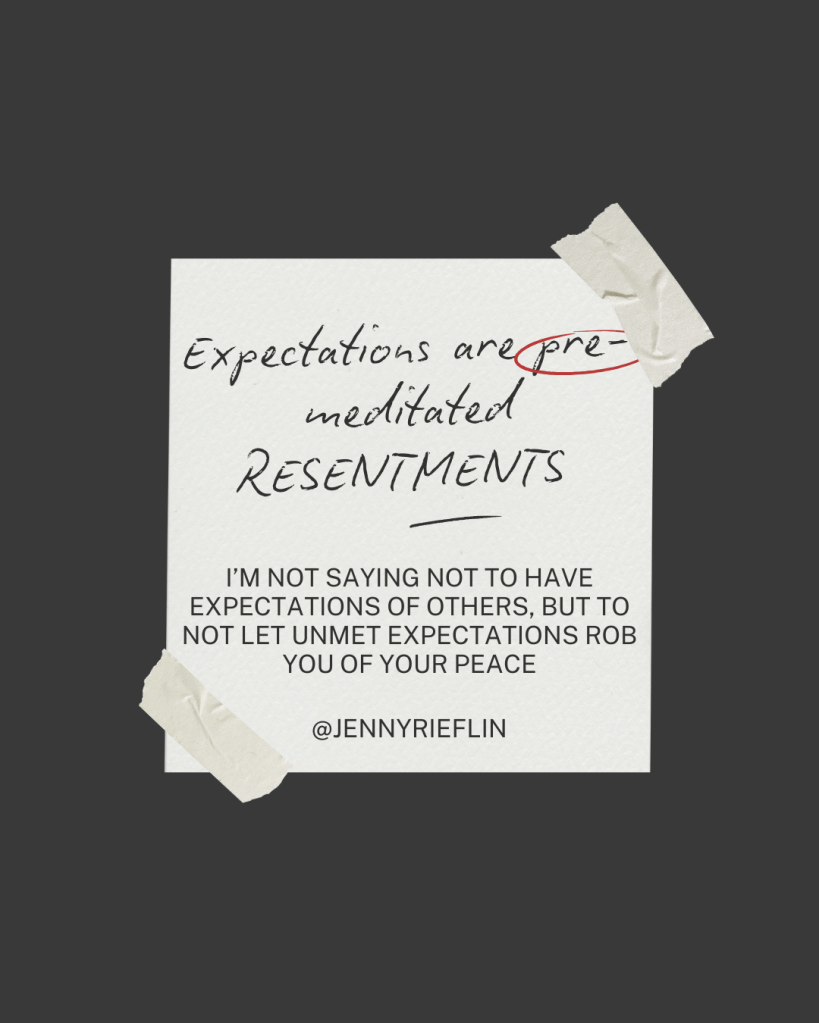 Expectations are pre-
meditated
RESENTMENTS
I'M NOT SAYING NOT TO HAVE
EXPECTATIONS OF OTHERS, BUT TO
NOT LET UNMET EXPECTATIONS ROB
YOU OF YOUR PEACE
@JENNYRIEFLIN